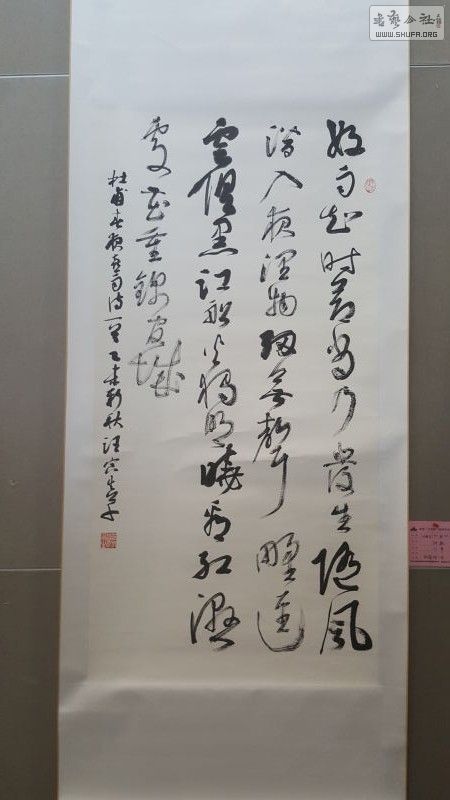 书艺公社
WWW.SHUFA.ORG
好雨知时节当乃發生随風
潜入夜润物细无声野径
雲俱黑江船火独明曉看红湿
处花重錦官城
杜甫春夜喜雨诗一首乙未新秋汪